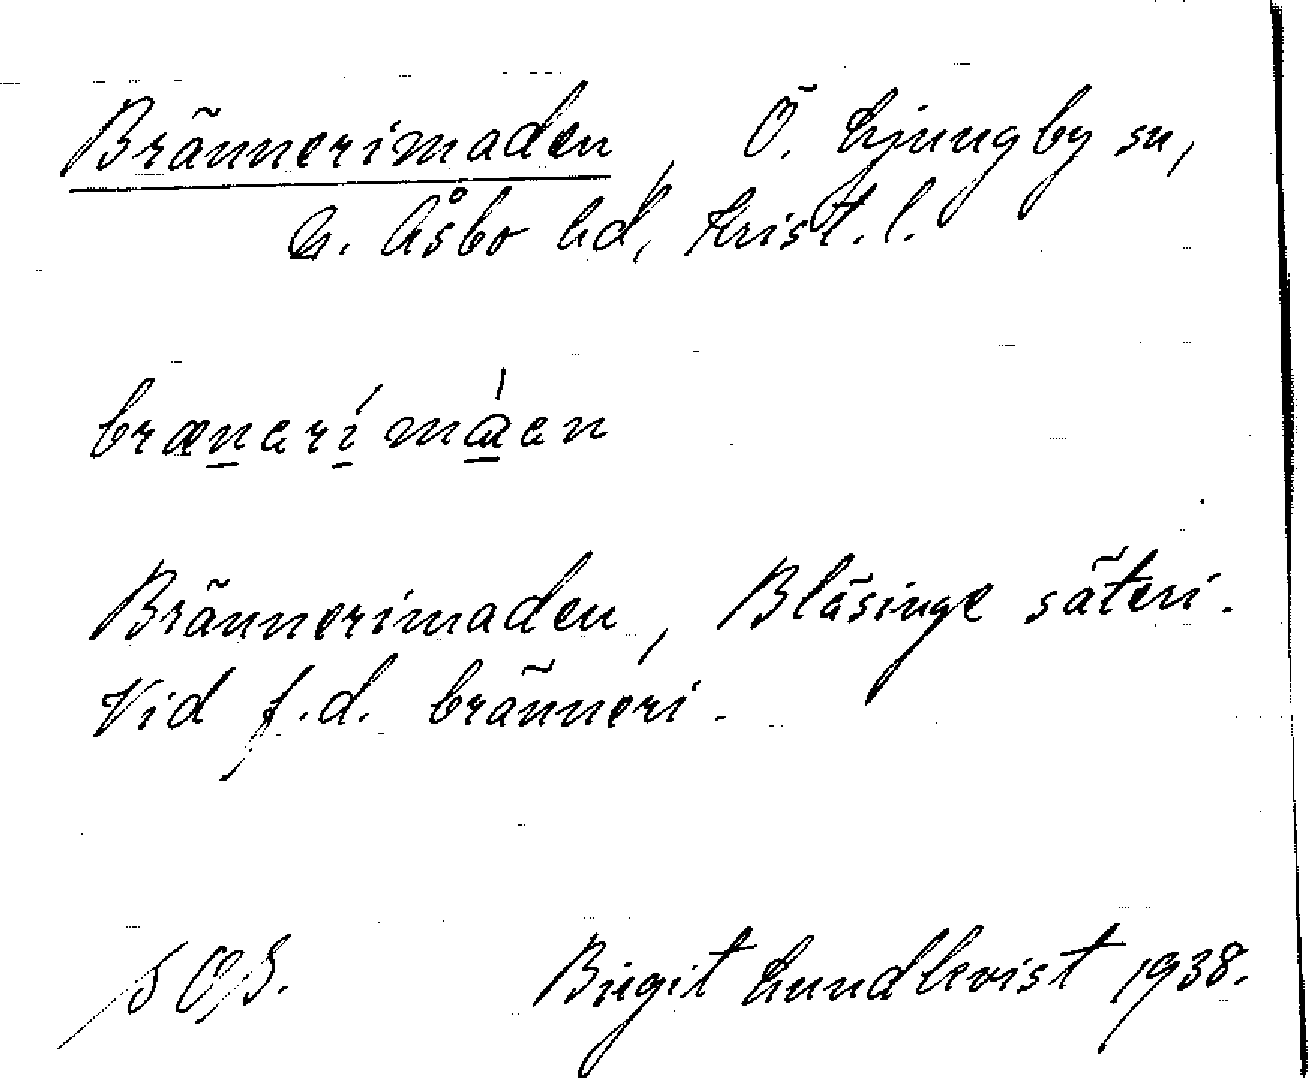 Brännerimaden, Ö. Ljungby sn,
N. Åsbo hd, Krist. l.
brænarí máen
Brännerimaden, Bläsinge säteri.
Vid f.d. bränneri.
Birgit Lundkvist 1938.